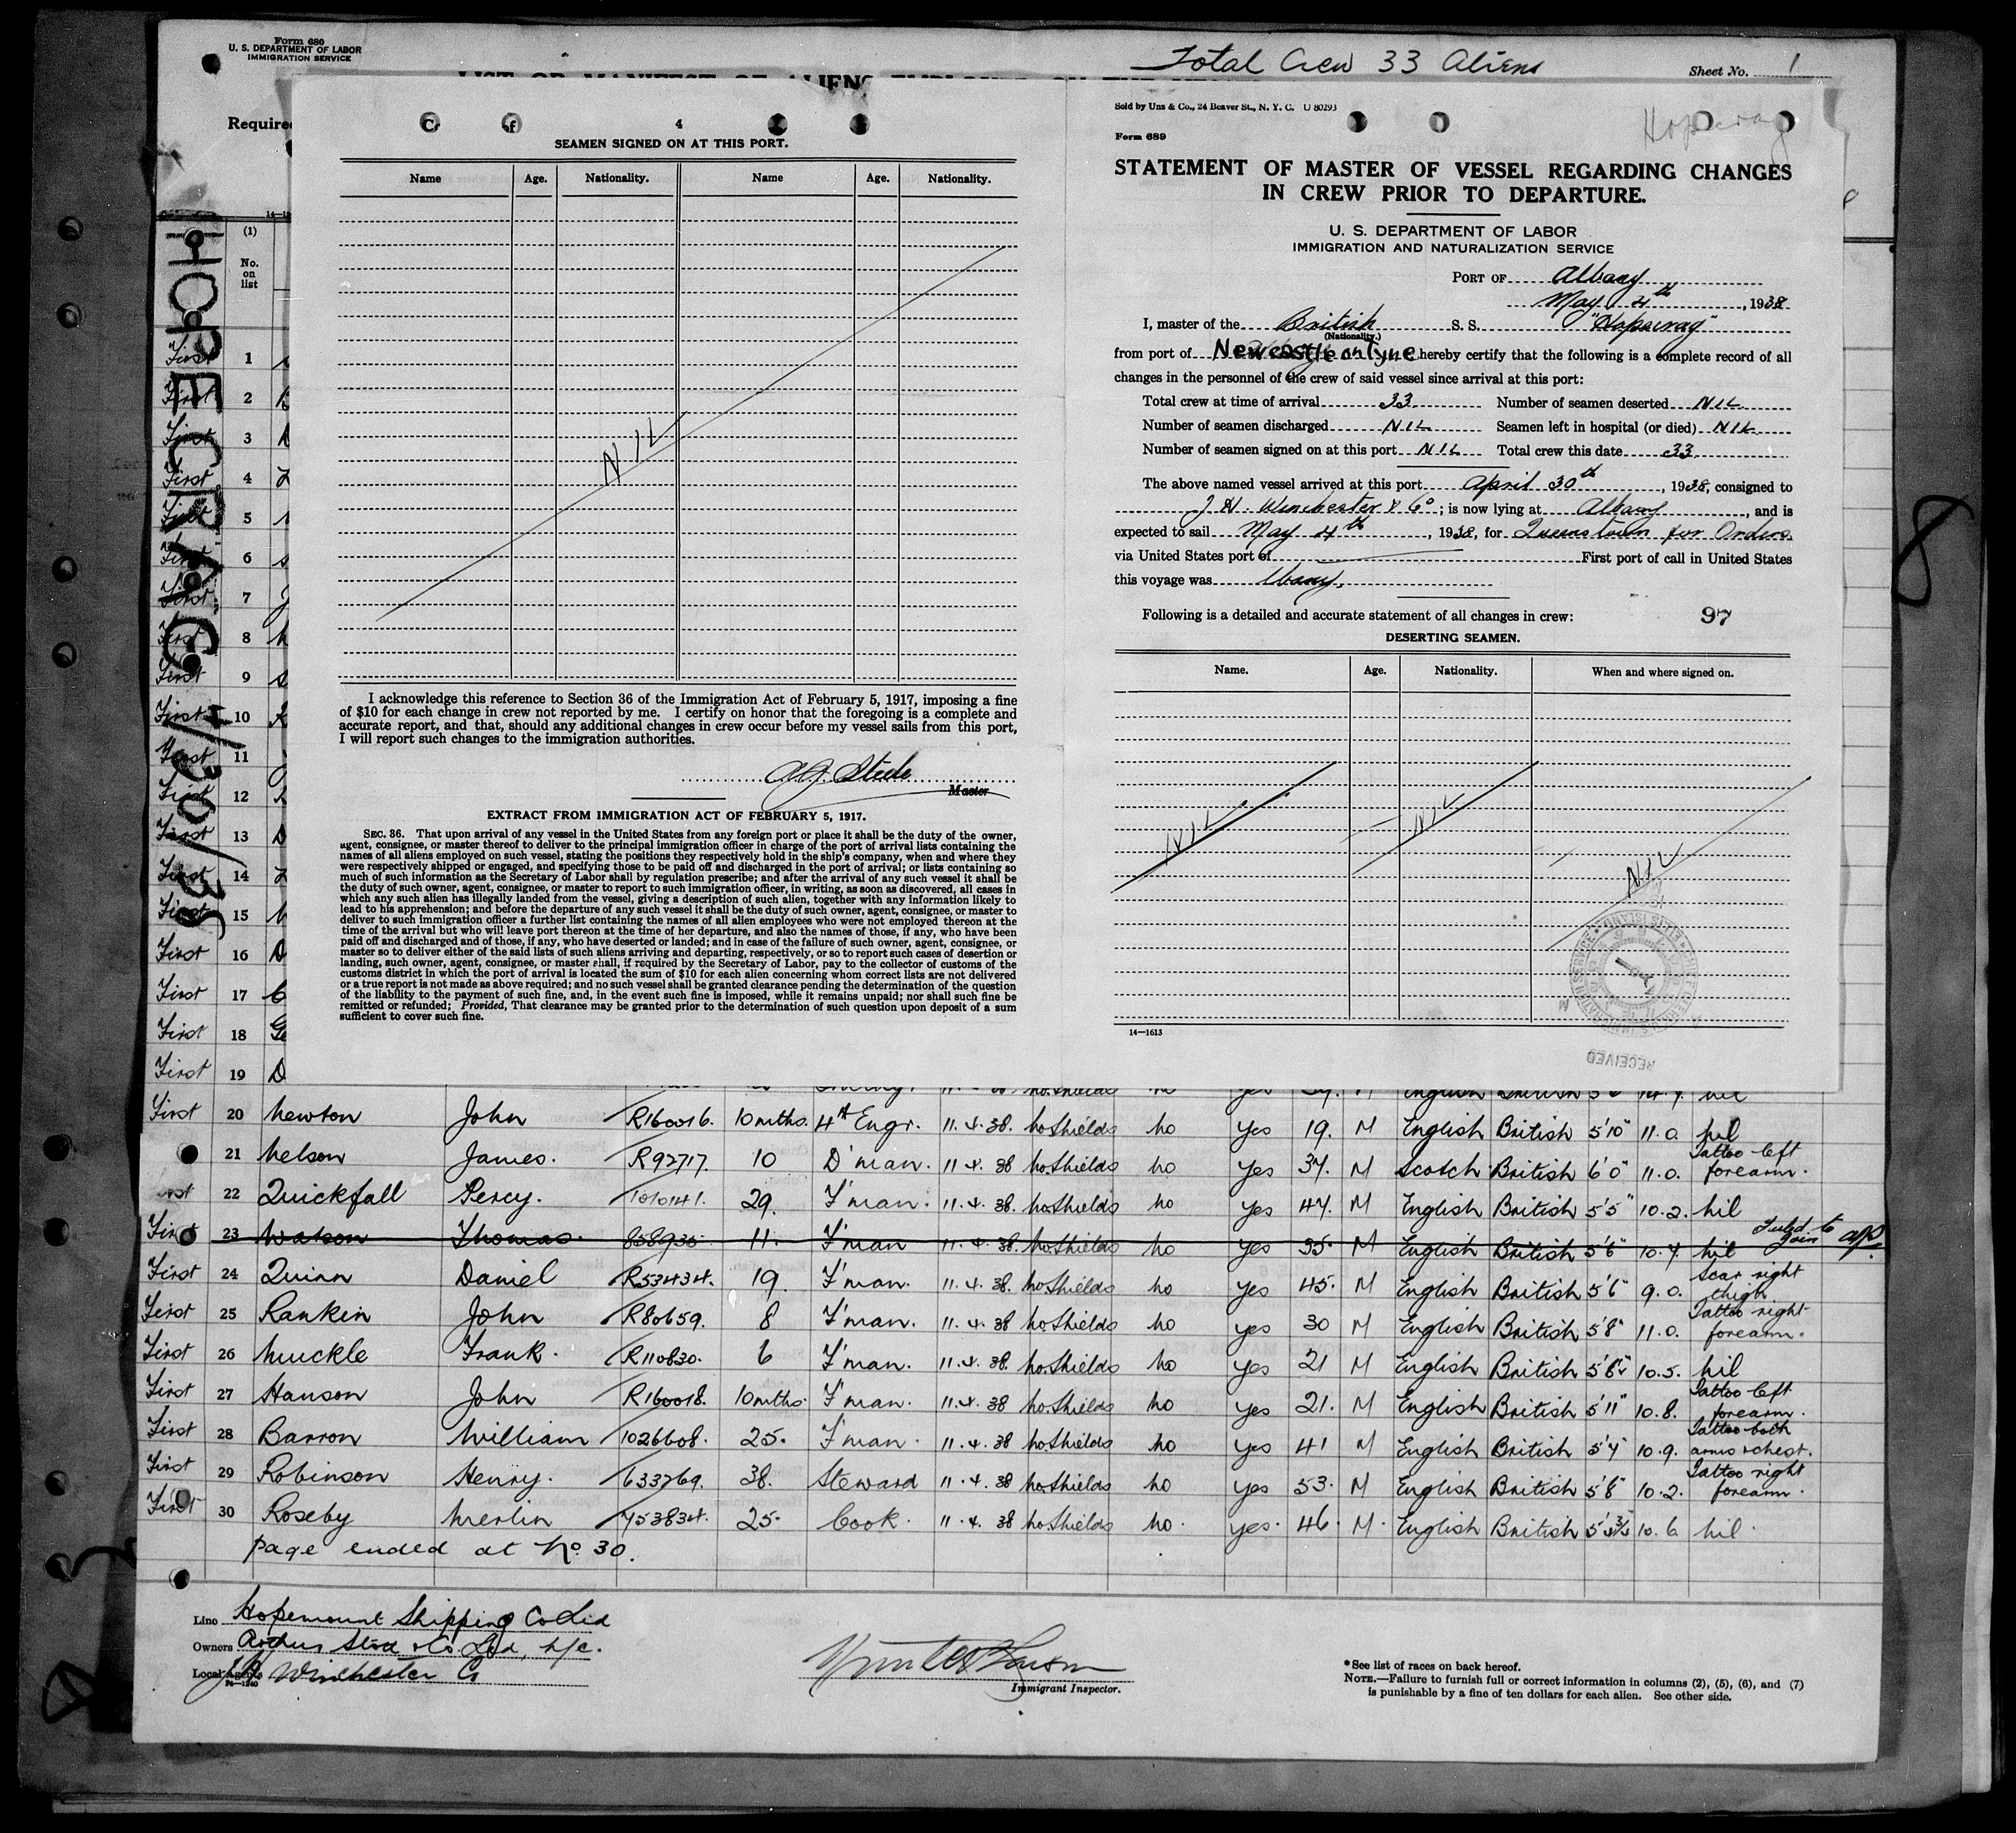 Form 680
U. S. DEPARTMENT OF LABOR
IMMIGRATION SERVICE
Total Crew 33 Aliens
Sheet No. 1
Require
(1)
No.
on
list
HOPECRAG
4
SEAMEN SIGNED ON AT THIS PORT.
Name Age. Nationality. Name Age. Nationality.
NIL
I acknowledge this reference to Section 36 of the Immigration Act of February 5, 1917, imposing a fine
of $10 for each change in crew not reported by me. I certify on honor that the foregoing is a complete and
accurate report, and that, should any additional changes in crew occur before my vessel sails from this port,
I will report such changes to the immigration authorities.
Steele
Master
EXTRACT FROM IMMIGRATION ACT OF FEBRUARY 5, 1917.
SEC. 36. That upon arrival of any vessel in the United States from any foreign port or place it shall be the duty of the owner,
agent, consignee, or master thereof to deliver to the principal immigration officer in charge of the port of arrival lists containing the
names of all aliens employed on such vessel, stating the positions they respectively hold in the ship's company, when and where they
were respectively shipped or engaged, and specifying those to be paid off and discharged in the port of arrival; or lists containing so
much of such information as the Secretary of Labor shall by regulation prescribe; and after the arrival of any such vessel it shall be
the duty of such owner, agent, consignee, or master to report to such immigration officer, in writing, as soon as discovered, all cases in
which any such alien has illegally landed from the vessel, giving a description of such alien, together with any information likely to
lead to his apprehension; and before the departure of any such vessel it shall be the duty of such owner, agent, consignee, or master to
deliver to such immigration officer a further list containing the names of all alien employees who were not employed thereon at the
time of the arrival but who will leave port thereon at the time of her departure, and also the names of those, if any, who have been
paid off and discharged and of those, if any, who have deserted or landed; and in case of the failure of such owner, agent, consignee, or
master so to deliver either of the said lists of such aliens arriving and departing, respectively, or so to report such cases of desertion or
landing, such owner, agent, consignee, or master shall, if required by the Secretary of Labor, pay to the collector of customs of the
customs district in which the port of arrival is located the sum of $10 for each alien concerning whom correct lists are not delivered
or a true report is not made as above required; and no such vessel shall be granted clearance pending the determination of the question
of the liability to the payment of such fine, and, in the event such fine is imposed, while it remains unpaid; nor shall such fine be
remitted or refunded; Provided, That clearance may be granted prior to the determination of such question upon deposit of a sum
sufficient to cover such fine.
Sold by Unz & Co., 24 Beaver St., N. Y. C. U 80293
Form 689
Hopecrag
STATEMENT OF MASTER OF VESSEL REGARDING CHANGES
IN CREW PRIOR TO DEPARTURE.
U. S. DEPARTMENT OF LABOR
IMMIGRATION AND NATURALIZATION SERVICE
PORT OF Albany
May 4th, 1938
I, master of the British S. S. "Hopecrag"
(Nationality.)
from port of Newcastle on Tyne hereby certify that the following is a complete record of all
changes in the personnel of the crew of said vessel since arrival at this port:
Total crew at time of arrival 33 Number of seamen deserted NIL
Number of seamen discharged NIL Seamen left in hospital (or died) NIL
Number of seamen signed on at this port NIL Total crew this date 33
The above named vessel arrived at this port April 30th, 1938, consigned to
J H. Winchester & Co; is now lying at Albany, and is
expected to sail May 4th, 1938, for Queenstown for Orders.
via United States port of First port of call in United States
this voyage was Albany.
Following is a detailed and accurate statement of all changes in crew: 97
DESERTING SEAMEN.
Name. Age. Nationality. When and where signed on.
NIL NIL NIL
14—1613
RECEIVED
First 1
First 2
First 3
First 4
First 5
First 6
First 7
First 8
First 9
First 10
First 11
First 12
First 13
First 14
First 15
First 16
First 17
First 18
First 19
First 20 Newton John R160016. 10 mths. 4th Engr. 11.4.38. No.Shields no yes 19. M English British 5'10" 11.0. nil
21 Nelson James. R92717. 10 D'man. 11.4.38 No.Shields no yes 37. M Scotch British 6'0" 11.0. Tattoo left forearm.
22 Quickfall Percy. 1010141. 29. F'man. 11.4.38. No.Shields no yes 47. M English British 5'5" 10.2. nil
First 23 Watson Thomas. 858935 11. F'man 11.4.38. No.Shields no yes 35. M English British 5'6" 10.7. nil Failed to Join
First 24 Quinn Daniel R53434. 19. F'man. 11.4.38. No.Shields no yes 45. M English British 5'6" 9.0. Scar right thigh
First 25 Rankin John R80659. 8 F'man. 11.4.38 No.Shields no yes 30 M English British 5'8" 11.0. Tattoo right forearm.
First 26 Muckle Frank. R110830. 6 F'man. 11.4.38 No.Shields no yes 21 M English British 5'8" 10.5. nil
First 27 Hanson John R160018. 10 mths. F'man. 11.4.38 No.Shields no yes 21. M English British 5'11" 10.8. Tattoo left forearm.
First 28 Barron William 1026608. 25. F'man. 11.4.38 No.Shields no yes 41 M English British 5'4" 10.9. Tattoo both arms & chest.
First 29 Robinson Henry. 633769. 38. Steward 11.4.38 No.Shields no yes 53. M English British 5'8" 10.2. Tattoo right forearm.
First 30 Roseby Merlin 753834. 25. Cook. 11.4.38 No.Shields no. yes. 46. M. English British 5'4¾" 10.6 nil.
Page ended at No 30.
Line Hopemount Shipping Co Ltd
Owners Arthur Stott & Co. Ltd,
Local Agents J H Winchester Co
14—1240
Immigrant Inspector.
* See list of races on back hereof.
NOTE.—Failure to furnish full or correct information in columns (2), (5), (6), and (7)
is punishable by a fine of ten dollars for each alien. See other side.
8